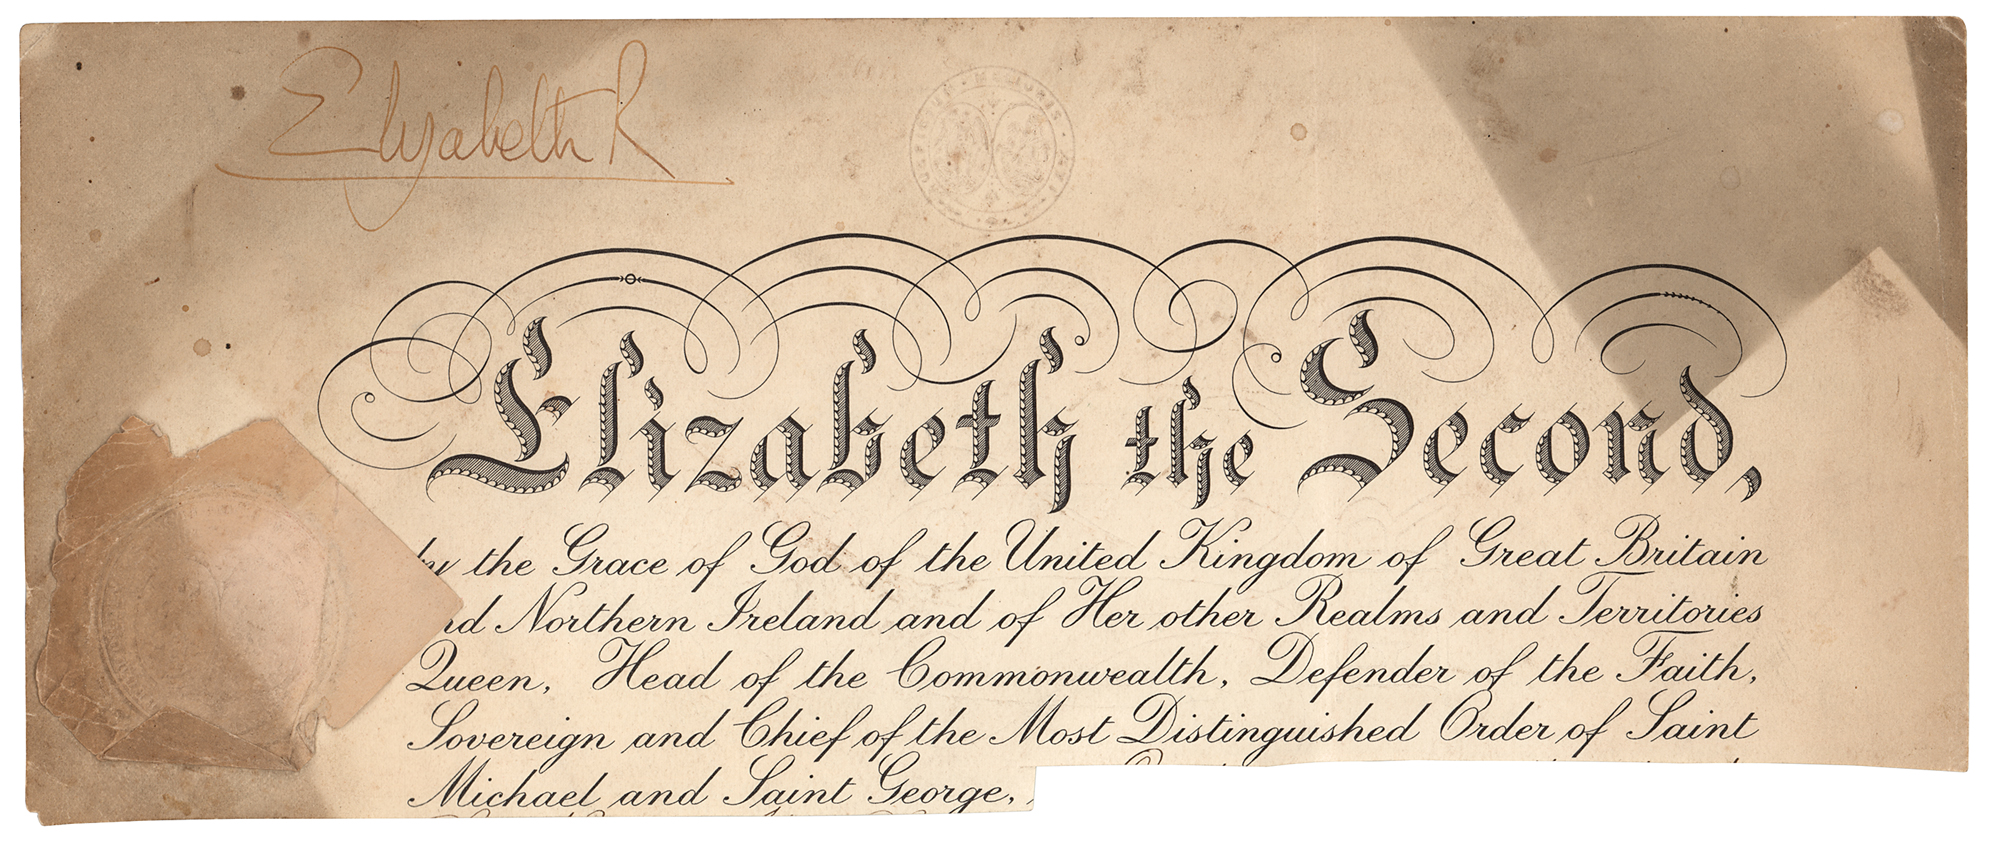 Elizabeth R
AUSPICIUM · MELIORIS · ÆVI
Elizabeth the Second,
by the Grace of God of the United Kingdom of Great Britain
nd Northern Ireland and of Her other Realms and Territories
Queen, Head of the Commonwealth, Defender of the Faith,
Sovereign and Chief of the Most Distinguished Order of Saint
Michael and Saint George,